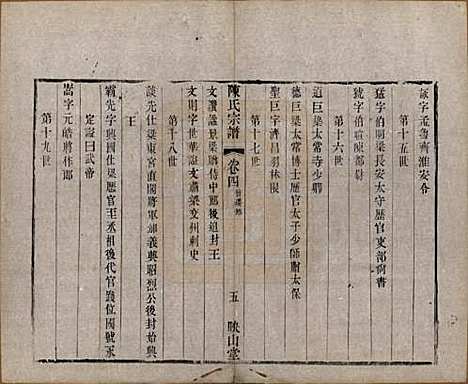 詠字孟魯齊淮安令
第十五世
猛字伯閈梁長安太守歷官吏部尚書
猇字伯暄陳都尉
第十六世
道巨梁太常寺少卿
德巨梁太常博士歷官太子少師謝太保
聖巨字濟昌羽林郎
第十七世
陳氏宗譜
卷四
五
映山堂
文讚諡景梁贈侍中郎後追封王
文則字世華諡文肅梁交州刺史
第十八世
談先仕梁東宮直閣將軍諡義興昭烈公後封始興
王
霸先字興國仕梁歷官王丞相後代官踐位國號永
定諡曰武帝
嵩字元皓將作郎
第十九世